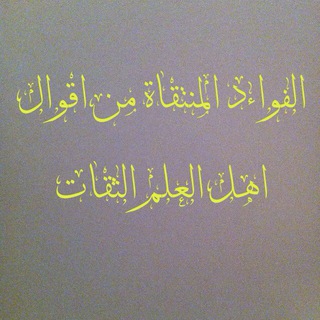 الفواءد المنتقاة من اقوال
اهل العلم الثقات